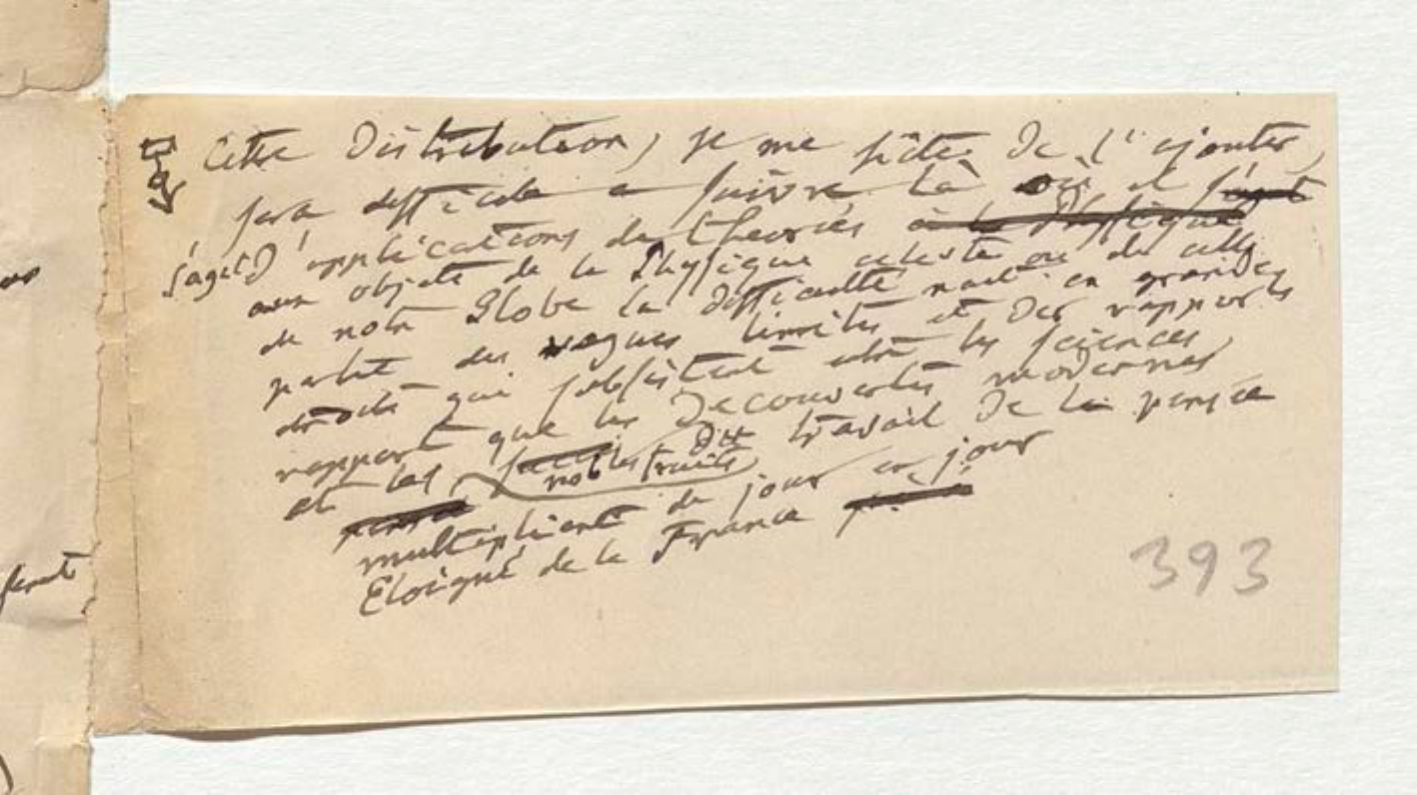 Cette Distribution, je me hâte de l'ajouter,
sera difficile a suivre là où il s'agit
s'agit d'applications de theories à la Physique
aux objets de la Physique celeste ou de celle
de notre Globe la difficulté nait en grande
partie des vagues limites et des rapports
étroits qui subsistent entre les sciences
rapport que les Decouvertes modernes
et les nobles fruits du travail de la pensée
multiplient de jour en jour
Eloigné de la France
393